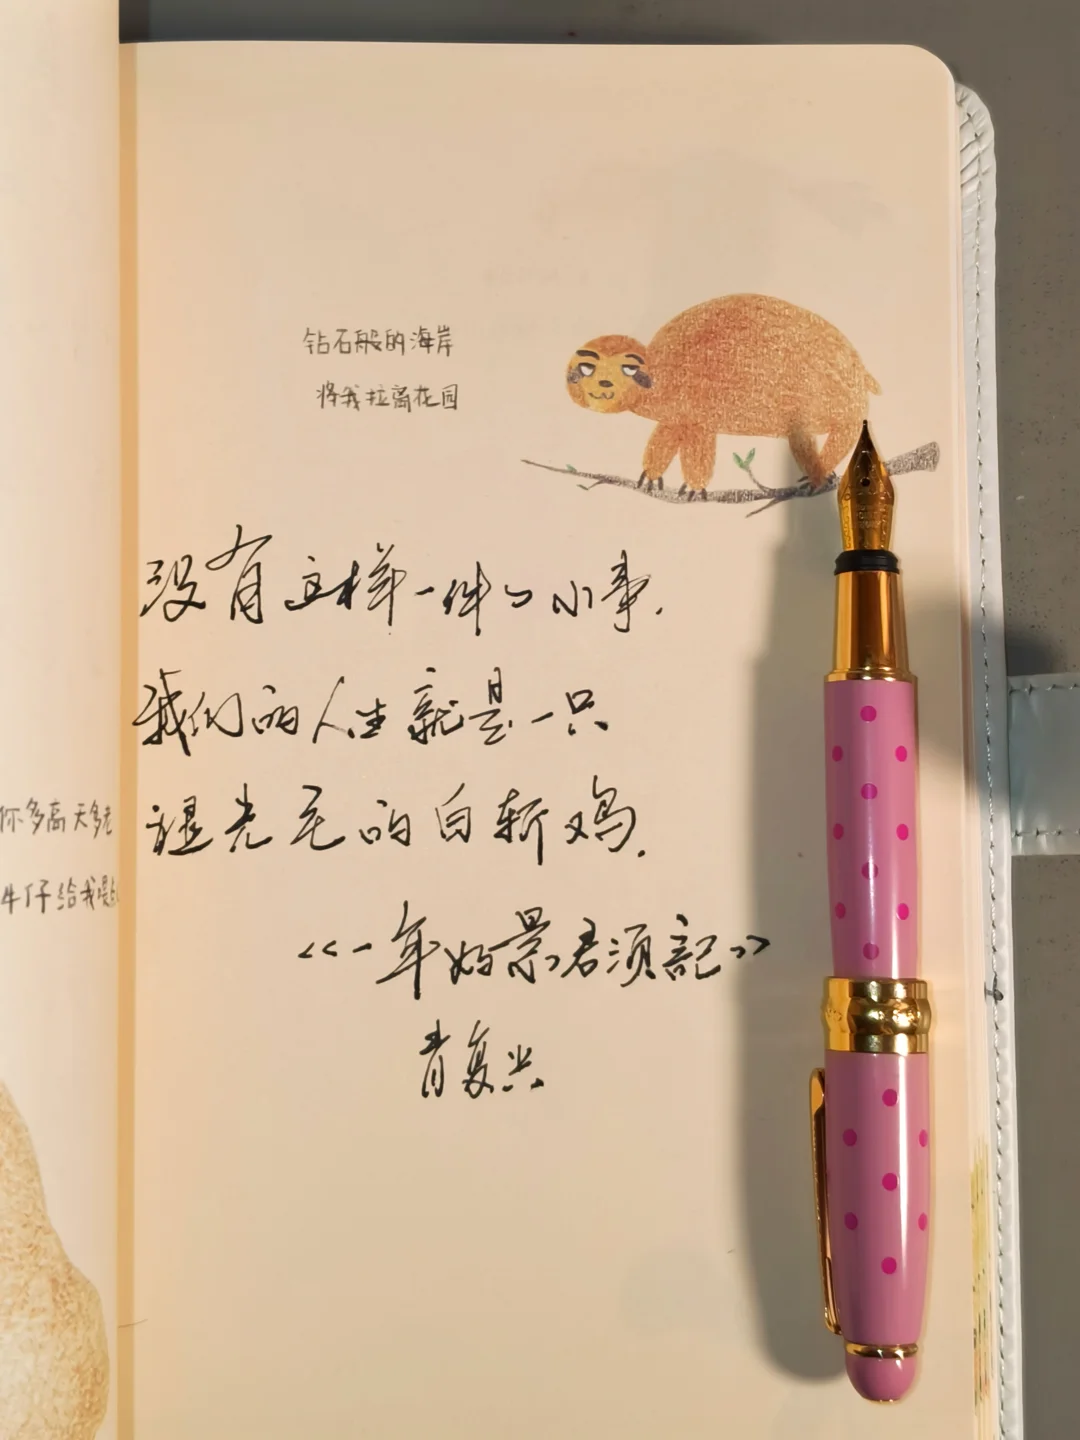 钻石般的海岸
将我拉离花园
没有这样一件小小事，
我们的人生就是一只
褪光毛的白斩鸡.
<<一年好景君须記>>
肖复兴
你多高 天多老
牛仔 给我